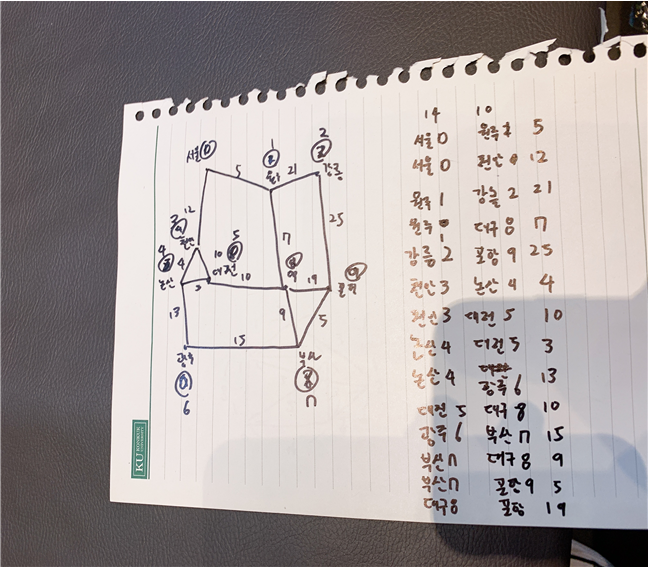 14 10
서울 0 원주 1 5
서울 0 천안 12
원주 1 강릉 2 21
원주 1 대구 8 7
강릉 2 포항 9 25
천안 3 논산 4 4
천안 3 대전 5 10
논산 4 대전 5 3
논산 4 광주 6 13
대전 5 대구 8 10
광주 6 부산 7 15
부산 7 대구 8 9
부산 7 포항 9 5
대구 8 포항 19
서울 0
1
원주
2
강릉
5
21
12
천안
25
4
논산
4
10
5
대전
7
10
19
포항
13
9
5
15
광주
6
부산
7
KU KONKUK UNIVERSITY